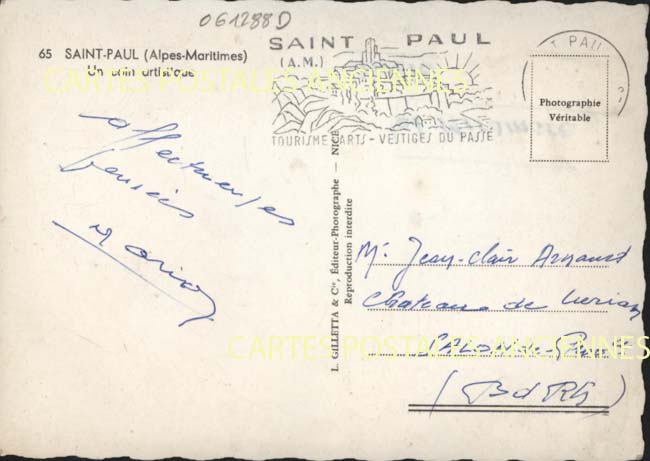 061288D
65 SAINT-PAUL (Alpes-Maritimes)
Un coin artistique
SAINT PAUL
(A.M.)
TOURISME-ARTS-VESTIGES DU PASSÉ
T PAUL
Photographie
Véritable
CARTES POSTALES ANCIENNES
affectueuses
pensées
L. GILLETTA & Cie, Éditeur-Photographe — NICE
Reproduction interdite
Mr Jean-Clair Arnaud
Chateau de
CARTES POSTALES ANCIENNES
(BdRh)